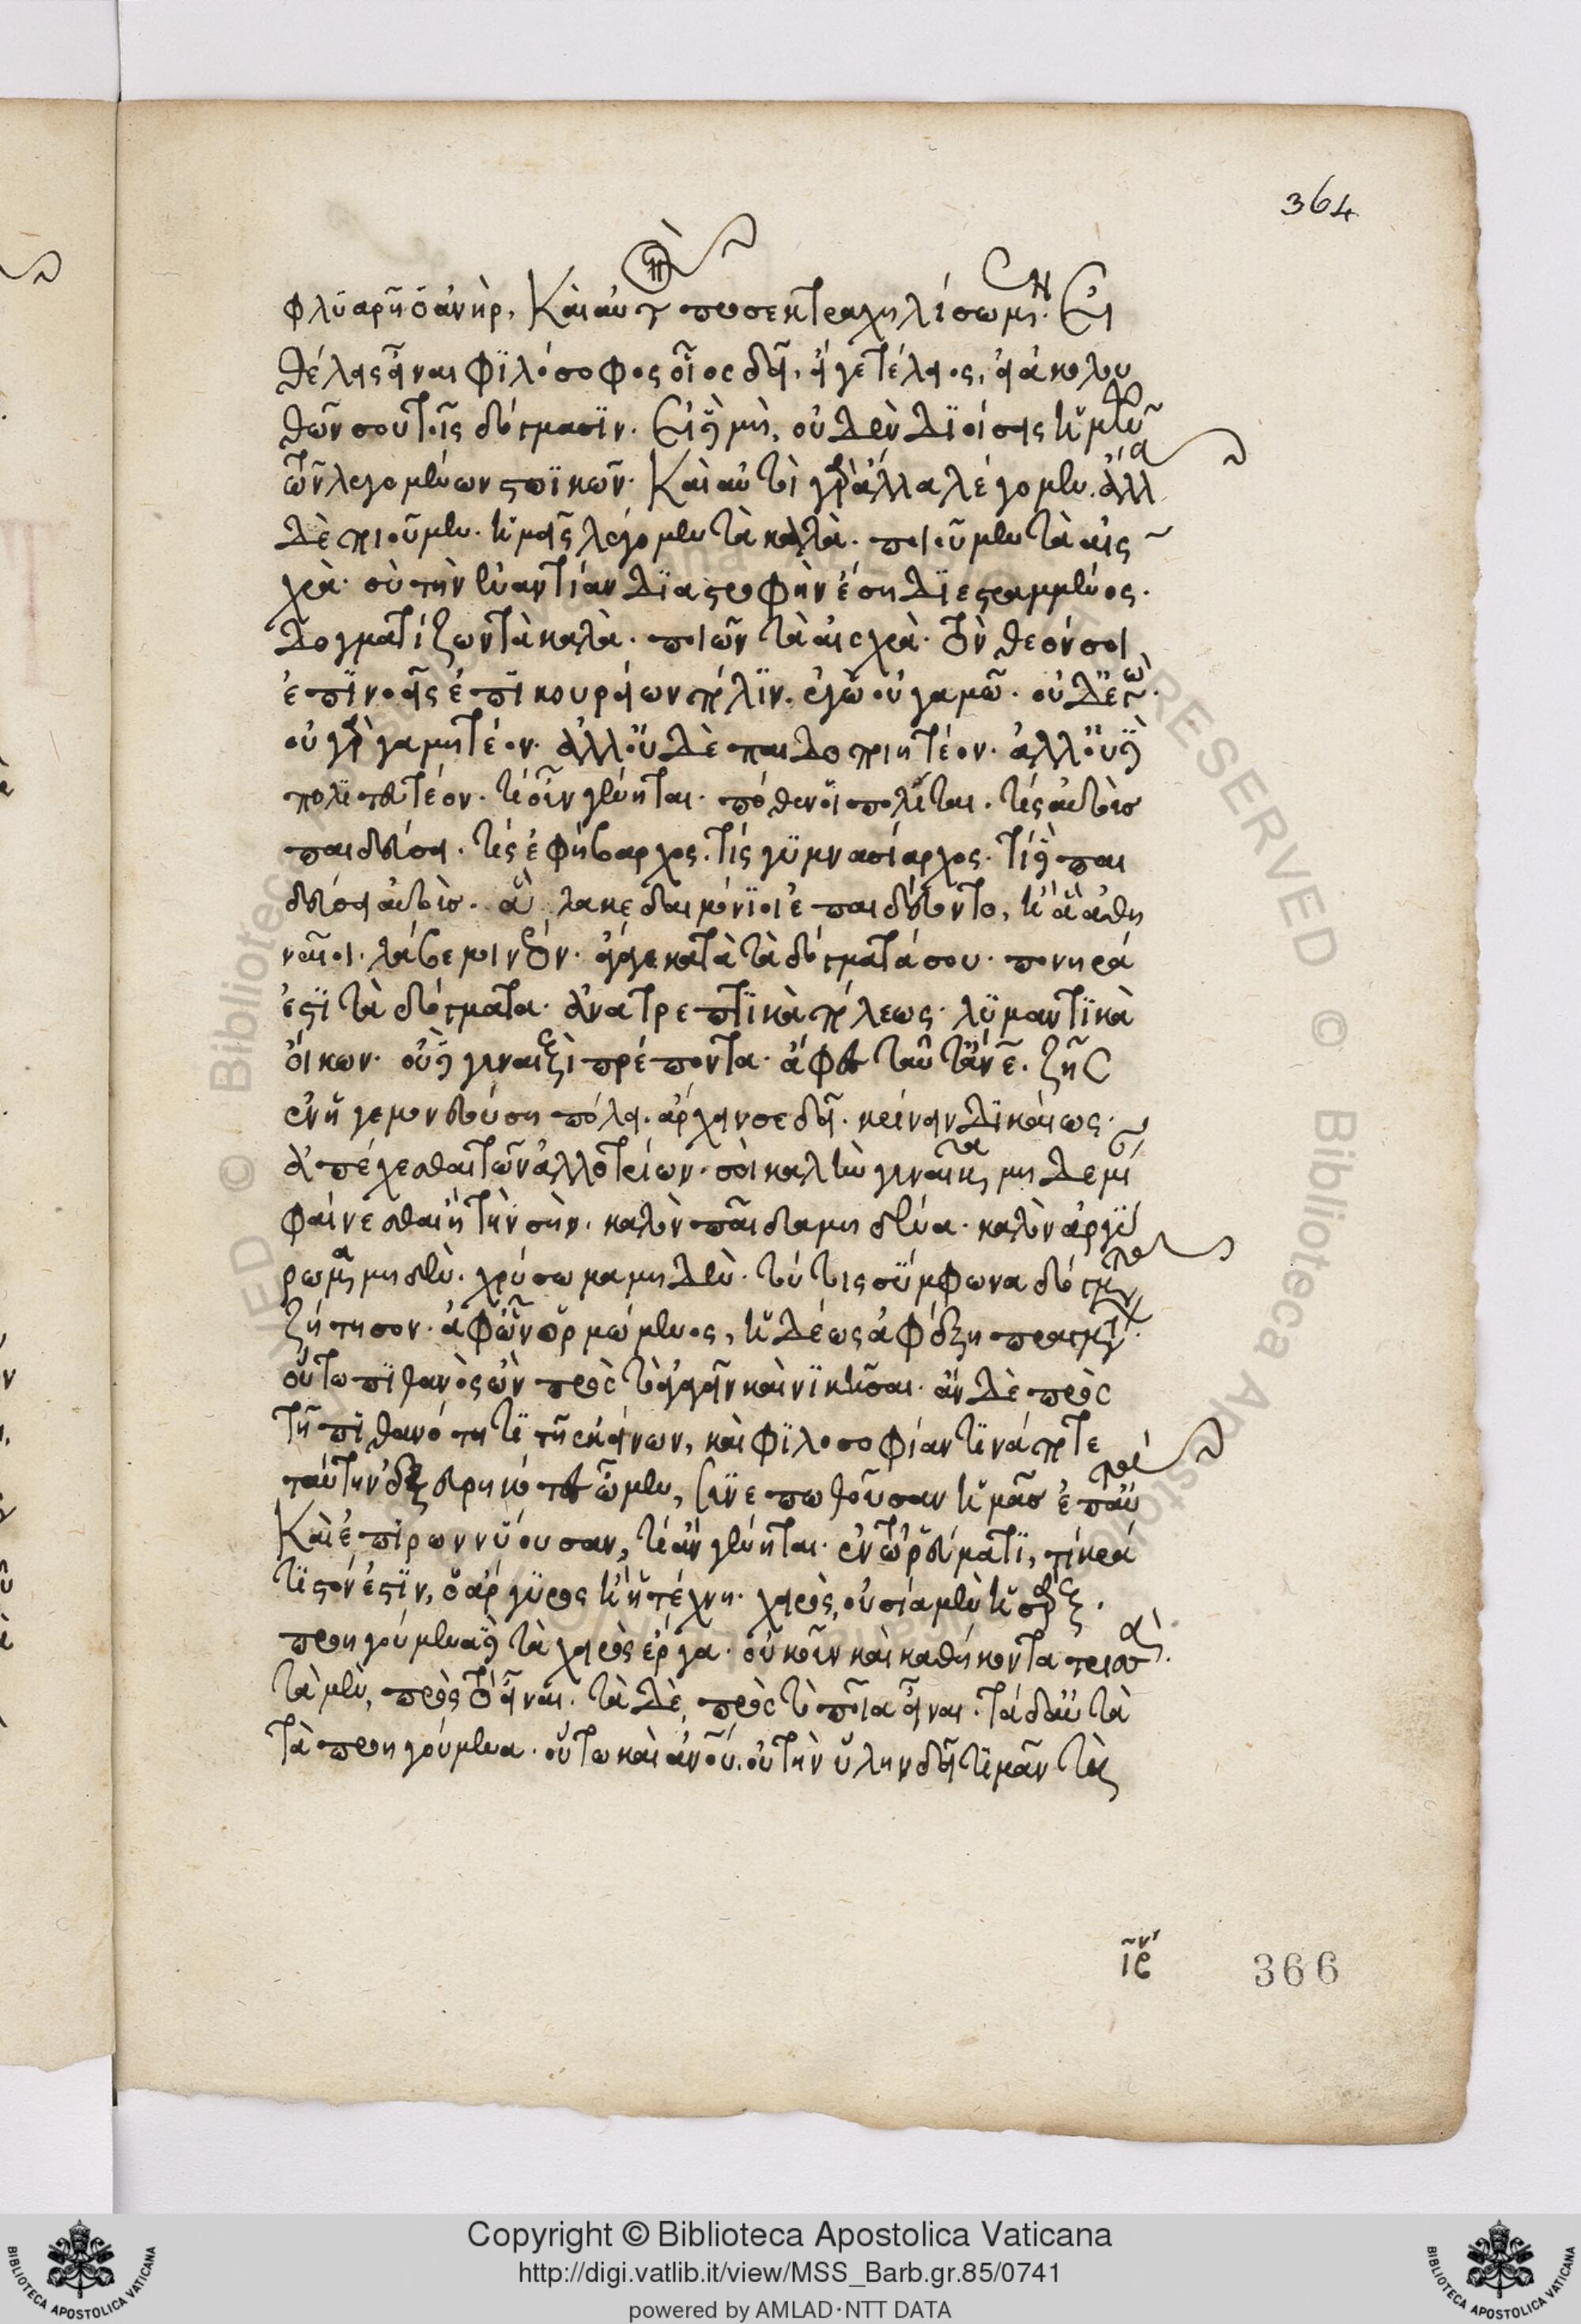 364
φλϋαρῆ ὁ ἀνὴρ, Καὶ αὐτ προσεκτραχηλίσωμη. Εἰ
θέλεις εἶναι φϊλόσοφος οἷος δεῖ, εἴγε τέλειος, εἰ ἀκολου
θῶν σου τοῖς δόγμασϊν. Εἰ δὲ μὴ, οὐδὲν διοίσεις ἡμῶν
τῶν λεγομένων στωϊκῶν. Καὶ αὐτοὶ γὰρ ἄλλα λέγομεν. ἄλλα
δὲ ποιοῦμεν. ἡμεῖς λέγομεν τὰ καλὰ. ποιοῦμεν τὰ αἰσ
χρὰ. σὺ τὴν ἐναντίαν διαστροφὴν ἔση διεστραμμένος.
δογματίζων τὰ καλὰ. ποιῶν τὰ αἰσχρὰ. τὸν θεόν σοι
ἐπϊνοεῖς ἐπϊκουρείων πόλϊν. ἐγὼ οὐ γαμῶ. οὐδ' ἐγὼ.
οὐ γὰρ γαμητέον. ἀλλ' οὐδὲ παιδοποιητέον. ἀλλ' οὐδὲ
πολϊτευτέον. τί οὖν γένηται. πόθεν οἱ πολῖται. τίς αὐτοὺς
παιδεύσει. τίς ἐφήβαρχος. τίς γϋμνασίαρχος. τί δὲ παι
δεύσει αὐτοὺς. ἃ λακεδαιμόνϊοι ἐπαιδεύοντο, ἢ ἃ ἀθη
ναῖοι. λάβε μοι νέον. ἄγαγε κατὰ τὰ δόγματά σου. πονηρά
ἐστϊ τὰ δόγματα. ἀνατρεπτϊκὰ πόλεως. λϋμαντϊκὰ
οἴκων. οὐδὲ γυναιξὶ πρέποντα. ἄφες ταῦτ' ἄνε. ζῇς
ἐν ἡγεμονευούσῃ πόλει. ἄρχειν σε δεῖ. κρίνειν δϊκαίως.
ἀπέχεσθαι τῶν ἀλλοτρίων. σοὶ καλὴν γυναῖκα μηδεμί
φαίνεσθαι ἢ τὴν σὴν. καλὸν παῖδα μηδένα. καλὸν ἀργϋ
ρωμα μηδὲν. χρύσωμα μηδὲν. τούτοις σύμφωνα δόγματα
ζήτησον. ἀφ' ὧν ὁρμώμενος, ἡδέως ἀφέξῃ πραγμάτων
οὕτω πϊθανὸς ὢν πρὸς τὸ ἀγαγεῖν καὶ νϊκῆσαι. ἂν δὲ πρὸς
τῇ πϊθανότητϊ τῇ ἐκείνων, καὶ φϊλοσοφίαν τϊνά ποτε
ταύτην ἐξευρηκότες ὦμεν, συνεπωθοῦσαν ἡμᾶς ἐπ' αὐτά
Καὶ ἐπϊρωννύουσαν, τί ἂν γένηται. ἐν τορεύματϊ, τί κρά
τϊστόν ἐστϊν, ὁ ἄργϋρος ἢ ἡ τέχνη. χειρὸς, οὐσία μὲν ἡ σὰρξ.
προηγούμενα δὲ τὰ χειρὸς ἔργα. οὐκοῦν καὶ καθήκοντα τρισσὰ.
τὰ μὲν, πρὸς τὸ εἶναι. τὰ δὲ, πρὸς τὸ ποῖα εἶναι. τὰ δ' αὐτὰ
τὰ προηγούμενα. οὕτω καὶ ἀνοῦ. οὐ τὴν ὕλην δεῖ τϊμᾶν τὰ
366
Copyright © Biblioteca Apostolica Vaticana
http://digi.vatlib.it/view/MSS_Barb.gr.85/0741
powered by AMLAD·NTT DATA